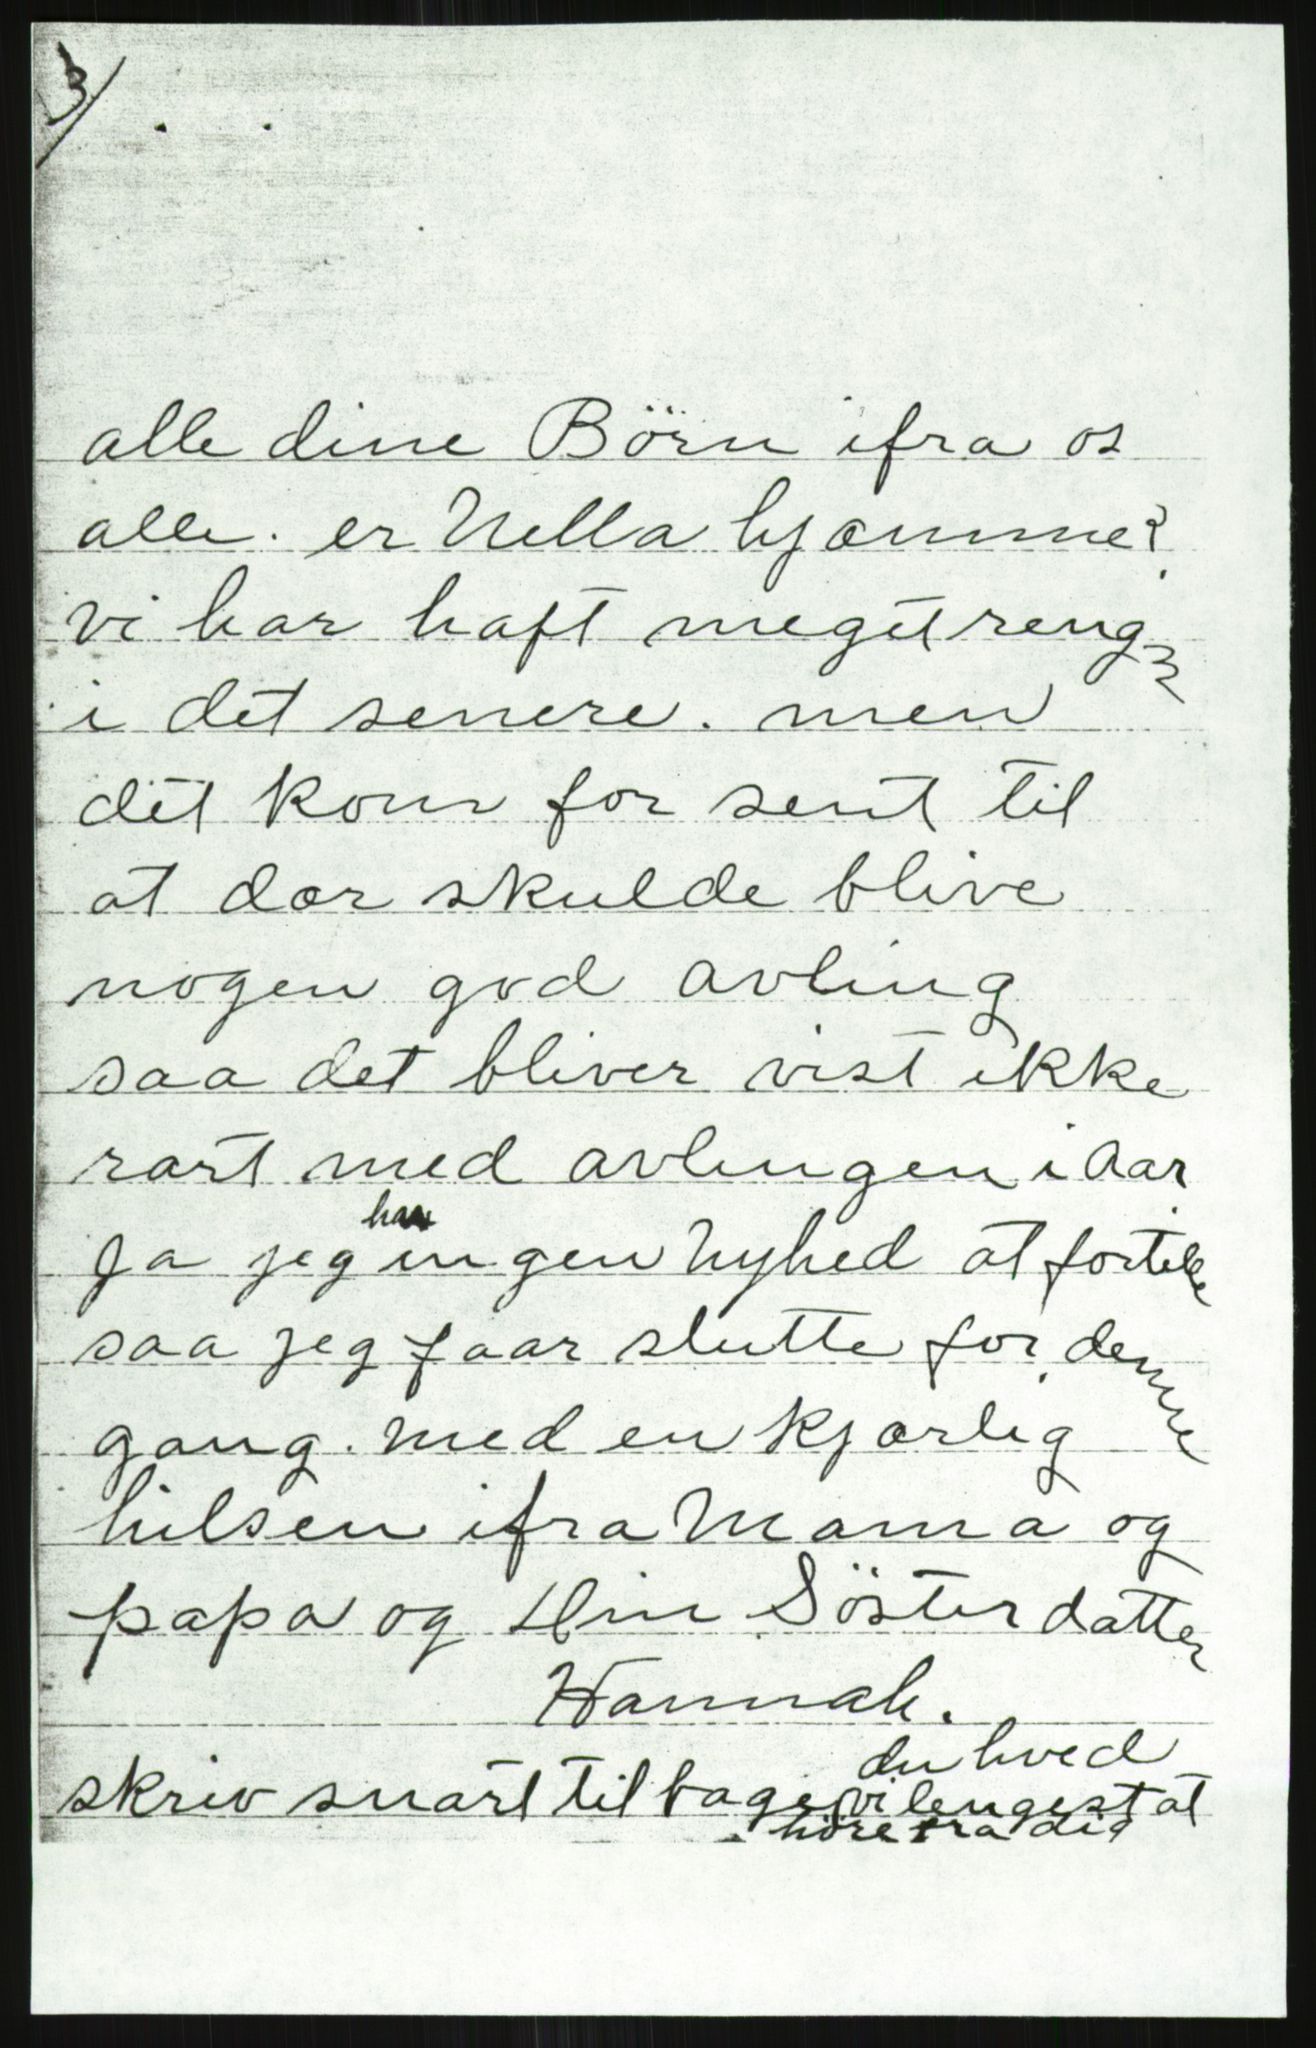 3/
alle dine Börn ifra os
alle. er Nella hjamme?
vi har haft meget reng
i det senere. men
det kom for sent til
at dær skulde blive
nogen god avling
saa det bliver vist ikke
rart med avlingen i aar
har
Ja jeg ingen nyhed at fortelle
saa jeg faar slutte for denne
gang. med en kjærlig
hilsen ifra Mama og
papa og Din Söster datter
Hannah.
du hved
skriv snart tilbage vi lengest at
höre fra dig